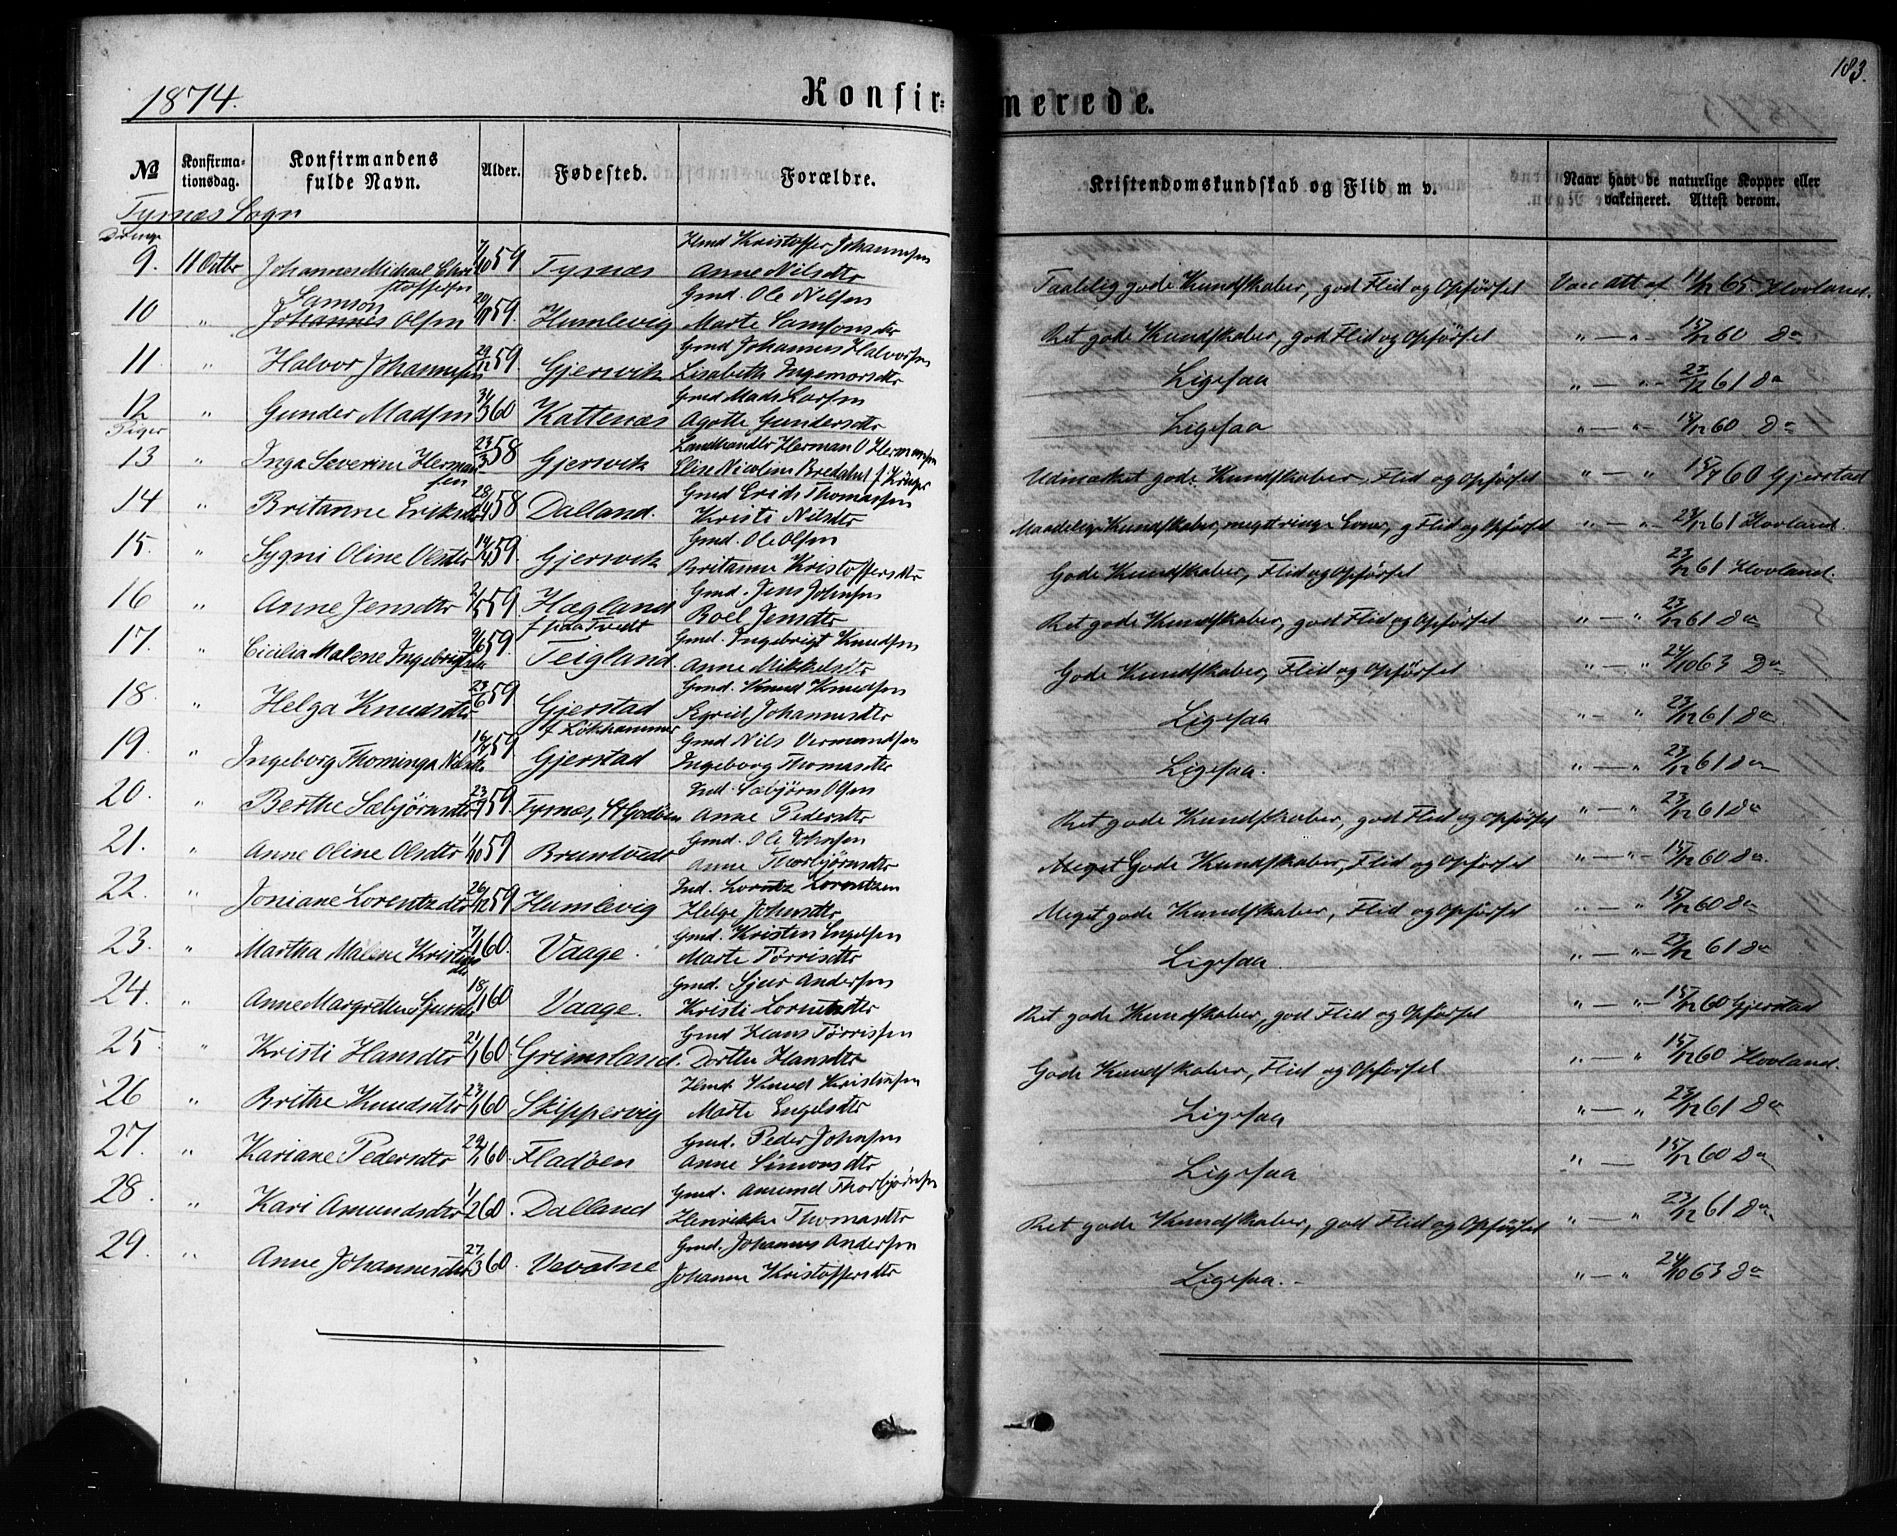 1874.
Konfir-
merede.
183.
No
Konfirma-
tionsdag.
Konfirmandens
fulde Navn.
Alder.
Fødested.
Forældre.
Kristendomskundskab og Flid m v.
Naar havt de naturlige Kopper eller
vakcineret. Attest derom.
Tysnæs Sogn
Drenge
Hmd Kristoffer Johannesen
9. 11 Octbr Johannes Michael Chri 7/10 59 Tysnæs Anne Nilsdtr Taalelig gode Kundskaber, god Flid og Opførsel Vacc att af 11/12 65 Hovland.
stoffersen
Samson Gmd. Ole Nilsen
10 " Johannes Olsen 59. Humlevig Marte Samsonsdtr Ret gode Kundskaber, god Flid og Opførsel " — " 15/12 60 Do
Gmd Johannes Halvorsen
11. " Halvor Johannessen 29/12 59. Gjersvik Lisabeth Ingemorsdtr Ligesaa " — " 23/12 61 Do
Gmd Mads Larsen
12 " Gunder Madsen 31/3 60 Kattenæs Agotte Gundersdtr Ligesaa " — " 15/12 60 Do
Piger
Landhandler Herman O Hermansen
13 " Inga Severine Herman 23/3 58 Gjersvik Elise Nicoline Bredahl f. Krüger Udmærket gode Kundskaber, Flid og Opførsel " — " 15/7 60 Gjerstad
sen
Gmd Erich Thomassen
14 " Britanne Eriksdtr 58 Dalland. Kristi Nilsdtr Maadelige Kundskaber, meget ringe Evner, g Flid og Opførsel " — " 23/12 61 Hovland.
Gmd. Ole Olsen
15. " Sygni Oline Olsdtr 14/4 59. Gjersvik Britanne Kristoffersdtr Gode Kundskaber, Flid og Opførsel 23/12 61 Hovland.
Gmd. Jens Johnsen
16 " Anne Jensdtr 2/5 59 Hagland Roel Jensdtr Ret gode Kundskaber, god Flid og Opførsel " — " 23/12 61 Do
Tvedt Gmd. Ingebrigt Knudsen
17. " Cicilia Malene Ingebrigtsdtr 9/6 59. Teigland Anne Mikkelsdtr Gode Kundskaber, Flid og Opførsel " — " 24/10 63 Do
Gmd. Knud Knudsen
18. " Helga Knudsdtr 23/6 59 Gjerstad Sigrid Johannesdtr Ligesaa " — " 23/12 61 Do
Løkhammer Gmd Nils Vermundsen
19. " Ingeborg Thominga Nilsdtr 16/7 59 Gjerstad Ingeborg Thomasdtr Ligesaa. " — " 23/12 61 Do
Ind. Sæbjørn Olsen
20. " Berthe Sæbjørnsdtr 23/7 59 Tysnæs, St Godøen Anne Pedersdtr Ret gode Kundskaber, god Flid og Opførsel " — " 23/12 61 Do
Gmd. Ole Johnsen
21. " Anne Oline Olsdtr 1/10 59 Bruntvedt Anne Thorbjørnsdtr Meget Gode Kundskaber, Flid og Opførsel " — " 15/12 60 Do.
Ind. Lorntz Lorentzen
22. " Joniane Lorentzdtr 26/12 59 Humlevig Helge Johnsdtr Meget gode Kundskaber, Flid og Opførsel " — " 15/12 60 Do
Gmd. Kristen Engelsen
23. " Martha Malene Kristens 7/1 60. Vaage. Marte Torrisdtr Ligesaa. " — " 23/12 61 Do
dtr
Gmd. Sjur Andersen
24. " Anne Margrethe Sjursdtr 18/1 60 Vaage. Kristi Lorentzdtr Ret gode Kundskaber, god Flid og Opførsel " — " 15/12 60 Gjerstad
Gmd Hans Tørrissen
25. " Kristi Hansdtr 21/1 60. Grimsland. Dorthe Hansdtr Gode Kundskaber, Flid og Opførsel. " — " 15/12 60 Hovland.
Hmd. Knud Kristensen
26 " Brithe Knudsdtr 23/1 60 Skippervig Marte Engelsdtr Ligesaa " — " 23/12 61 Do
Gmd. Peder Johnsen
27. " Kariane Pedersdtr 29/1 60. Fladøen Anne Simonsdtr Ligesaa " — " 15/12 60 Do
Gmd. Amund Thorbjørnsen
28. " Kari Amundsdtr 1/2 60. Dalland Henrikke Thomasdtr Ret gode Kundskaber, god Flid og Opførsel " — " 23/12 61 Do
Gmd. Johannes Andersen
29. " Anne Johannesdtr 27/3 60. Vevatne Johanne Kristoffersdtr Ligesaa. " — " 24/10 63 Do